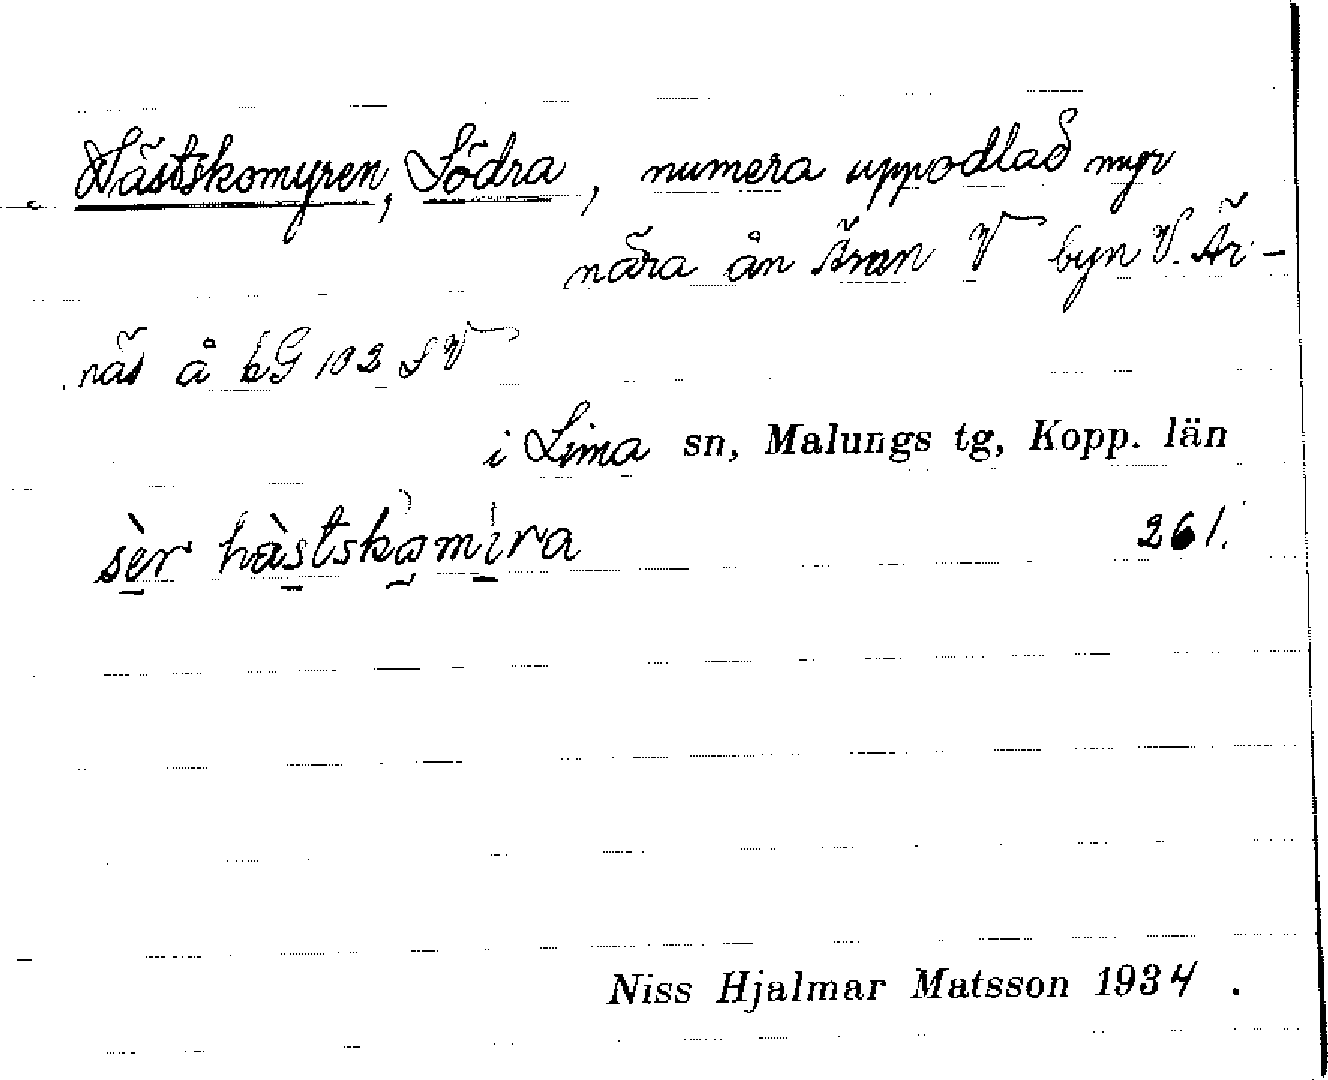 Hästskomyren, Södra, numera uppodlad myr
nära ån Äran V byn V. Är-
näs å bG 102 SV
i Lima sn, Malungs tg, Kopp. län
sèr hàstskòmìra 261.
Niss Hjalmar Matsson 1934.